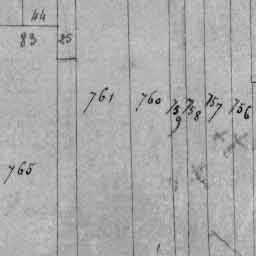 44
83 25
761 760 759 758 757 756
765